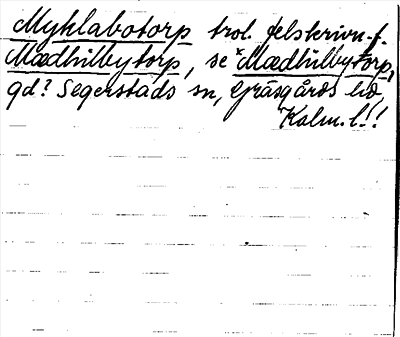 Myklabotorp trol. felskrivn. f.
Mædhilbytorp, se *Mædhilbytorp,
gd? Segerstads sn, Gräsgårds hd,
Kalm. l!!